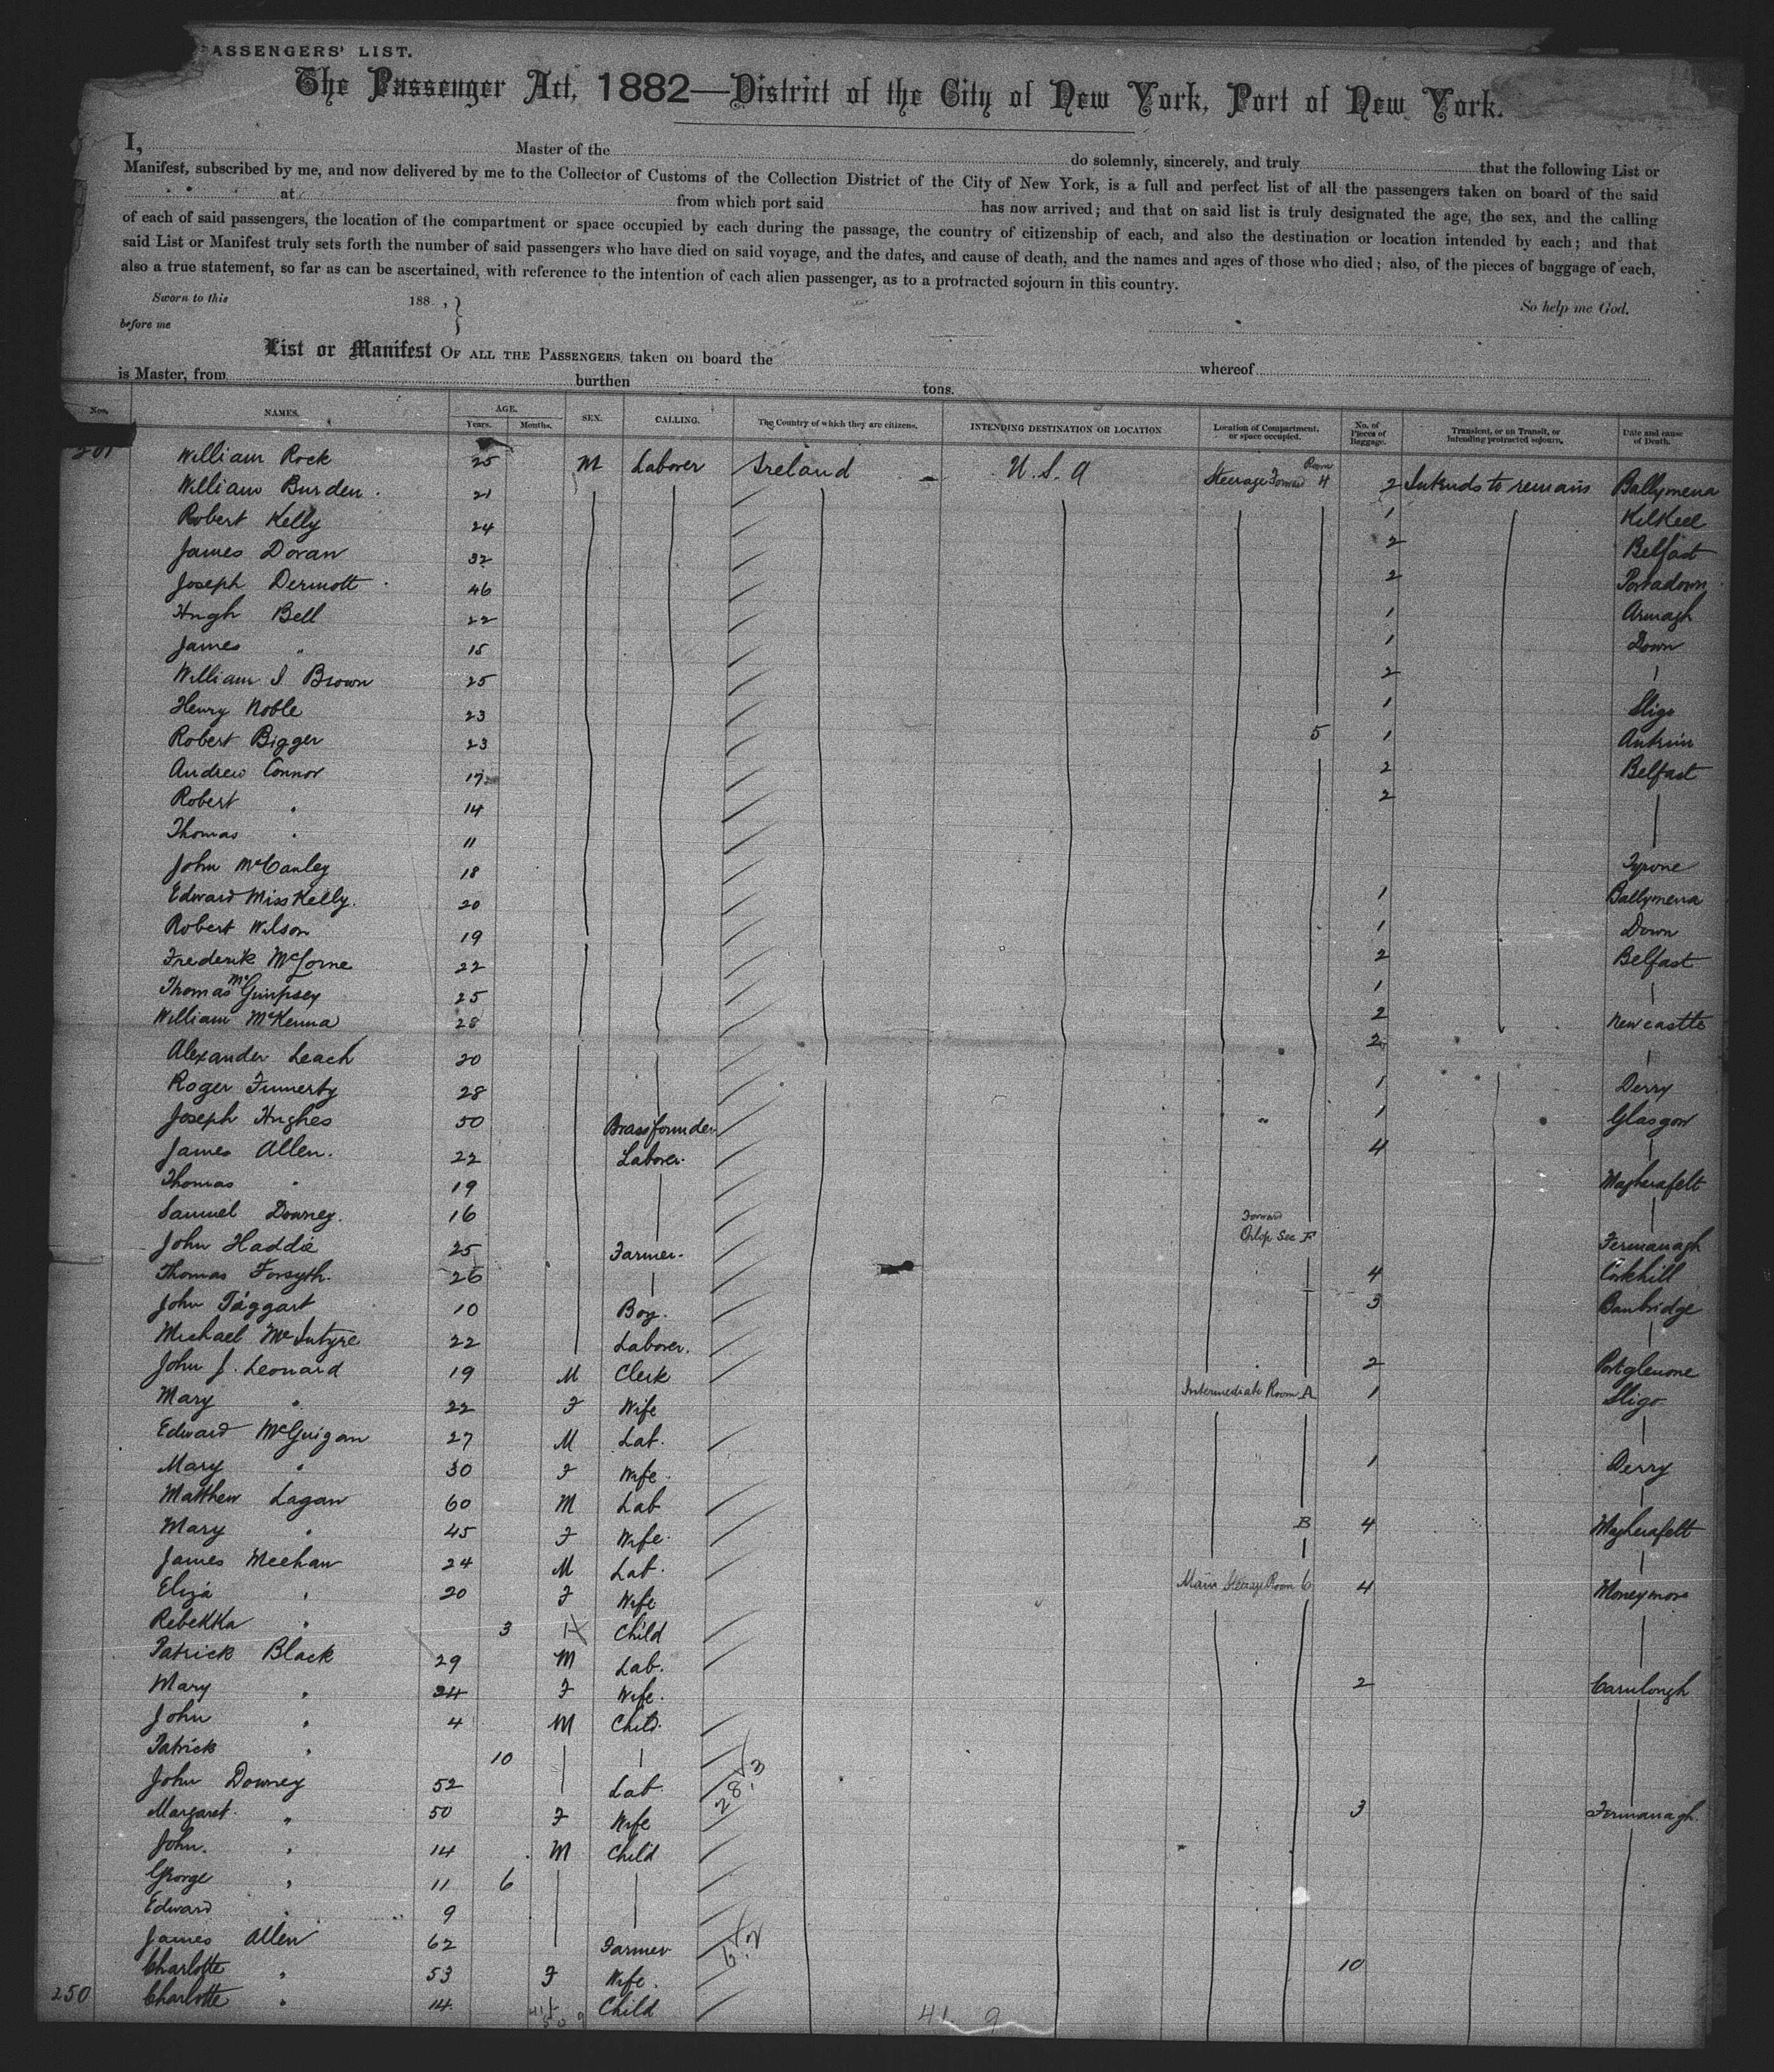 PASSENGERS' LIST.
The Passenger Act, 1882—District of the City of New York, Port of New York.
I, Master of the do solemnly, sincerely, and truly that the following List or
Manifest, subscribed by me, and now delivered by me to the Collector of Customs of the Collection District of the City of New York, is a full and perfect list of all the passengers taken on board of the said
at from which port said has now arrived; and that on said list is truly designated the age, the sex, and the calling
of each of said passengers, the location of the compartment or space occupied by each during the passage, the country of citizenship of each, and also the destination or location intended by each; and that
said List or Manifest truly sets forth the number of said passengers who have died on said voyage, and the dates, and cause of death, and the names and ages of those who died; also, of the pieces of baggage of each,
also a true statement, so far as can be ascertained, with reference to the intention of each alien passenger, as to a protracted sojourn in this country.
Sworn to this 188 , } So help me God.
before me
List or Manifest OF ALL THE PASSENGERS taken on board the whereof
is Master, from burthen tons.
Nos. NAMES. AGE. Years. Months. SEX. CALLING. The Country of which they are citizens. INTENDING DESTINATION OR LOCATION Location of Compartment, or space occupied. No. of Pieces of Baggage. Transient, or on Transit, or intending protracted sojourn. Date and cause of Death.
201 William Rock 25 M Laborer Ireland U.S.A Steerage Forward Room 4 2 Intends to remain Ballymena
William Burden 21 1 Kilkeel
Robert Kelly 24 2 Belfast
James Doran 32 2 Portadown
Joseph Dermott 46 1 Armagh
Hugh Bell 22 1 Down
James " 15 2
William I Brown 25 1 Sligo
Henry Noble 23 5 1 Antrim
Robert Bigger 23 2 Belfast
Andrew Connor 17 2
Robert " 14
Thomas " 11 Tyrone
John McCauley 18 1 Ballymena
Edward MissKelly. 20 1 Down
Robert Wilson 19 2 Belfast
Frederik McLorne 22 1
Thomas McGimpsey 25 2 Newcastle
William McKenna 28 2
Alexander Leach 20 1 Derry
Roger Finnerty 28 1 Glasgow
Joseph Hughes 50 Brassfounder " 4
James Allen. 22 Laborer. Magherafelt
Thomas " 19
Samuel Downey. 16 Forward Orlop Sec F Fermanagh
John Haddie 25 Farmer. 4 Corkhill
Thomas Forsyth. 26 3 Banbridge
John Taggart 10 Boy.
Michael McIntyre 22 Laborer. 2 Portglenone
John J. Leonard 19 M Clerk Intermediate Room A 1 Sligo
Mary " 22 F Wife
Edward McGuigan 27 M Lab. 1 Derry
Mary " 30 F Wife.
Matthew Lagan 60 M Lab B 4 Magherafelt
Mary " 45 F Wife.
James Meehan 24 M Lab. Main Steerage Room 6 4 Moneymore
Eliza " 20 F Wife
Rebekka " 3 Child
Patrick Black 29 M Lab. 2
Mary " 24 F Wife.
John " 4 M Child.
Patrick " 10
John Downey 52 Lab 28.3 3 Fermanagh.
Margaret. " 50 F Wife
John. " 14 M Child
George " 11 6
Edward " 9
James Allen 62 Farmer 6.2 10
Charlotte " 53 F Wife.
250 Charlotte " 14 Child
41 9